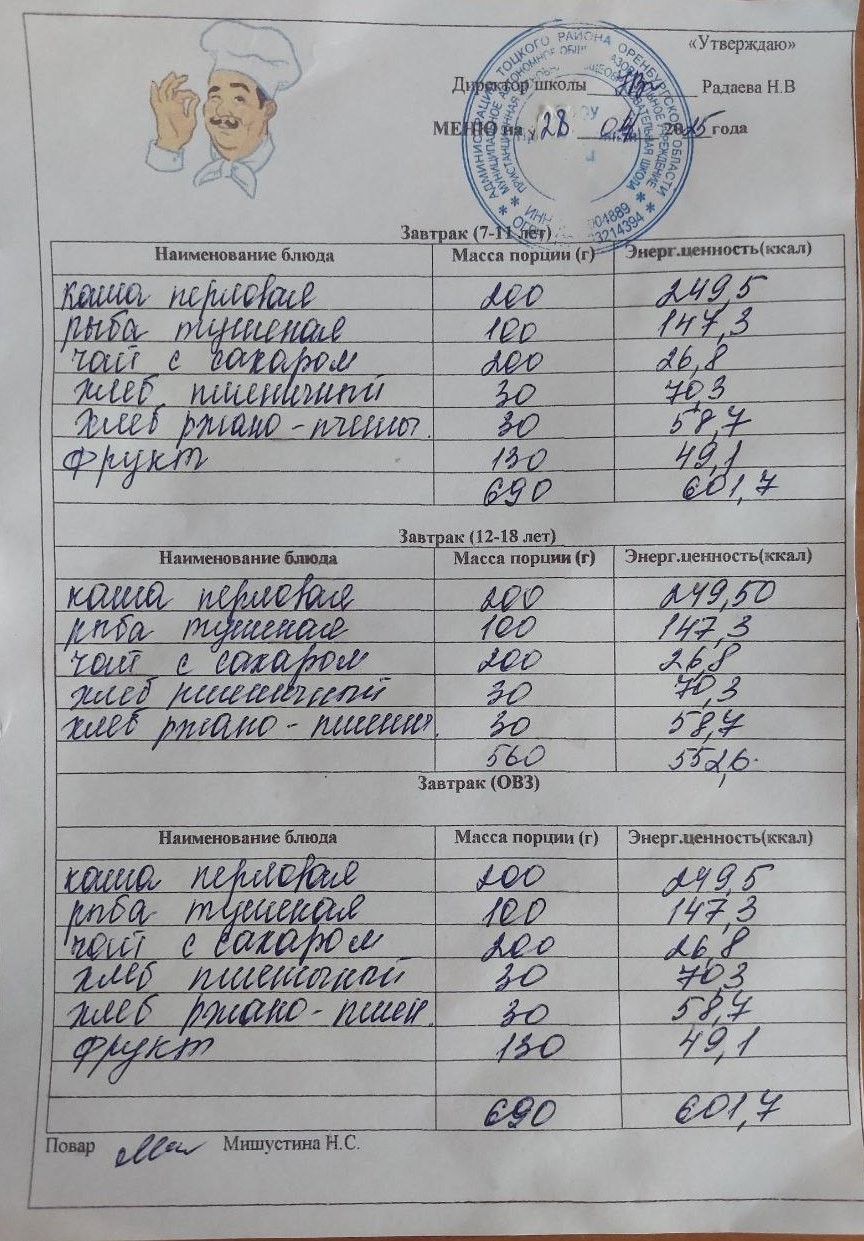 «Утверждаю»
Директор школы Радаева Н.В
МЕНЮ на 28 04 2025 года
АДМИНИСТРАЦИЯ ТОЦКОГО РАЙОНА ОРЕНБУРГСКОЙ ОБЛАСТИ
МУНИЦИПАЛЬНОЕ АВТОНОМНОЕ ОБЩЕОБРАЗОВАТЕЛЬНОЕ УЧРЕЖДЕНИЕ
ПРИСТАНЦИОННАЯ ШКОЛА
ИНН 904889
3214394
Завтрак (7-11 лет)
Наименование блюда Масса порции (г) Энерг.ценность(ккал)
каша перловая 200 249,5
рыба тушеная 100 147,3
чай с сахаром 200 26,8
хлеб пшеничный 30 70,3
хлеб ржано - пшены. 30 58,7
фрукт 130 49,1
690 601,7
Завтрак (12-18 лет)
Наименование блюда Масса порции (г) Энерг.ценность(ккал)
каша перловая 200 249,50
рыба тушеная 100 147,3
чай с сахаром 200 26,8
хлеб пшеничный 30 70,3
хлеб ржано - пшенич. 30 58,7
560 552,6.
Завтрак (ОВЗ)
Наименование блюда Масса порции (г) Энерг.ценность(ккал)
каша перловая 200 249,5
рыба тушеная 100 147,3
чай с сахаром 200 26,8
хлеб пшеничный 30 70,3
хлеб ржано - пшен. 30 58,7
фрукт 130 49,1
690 601,7
Повар Мишустина Н.С.